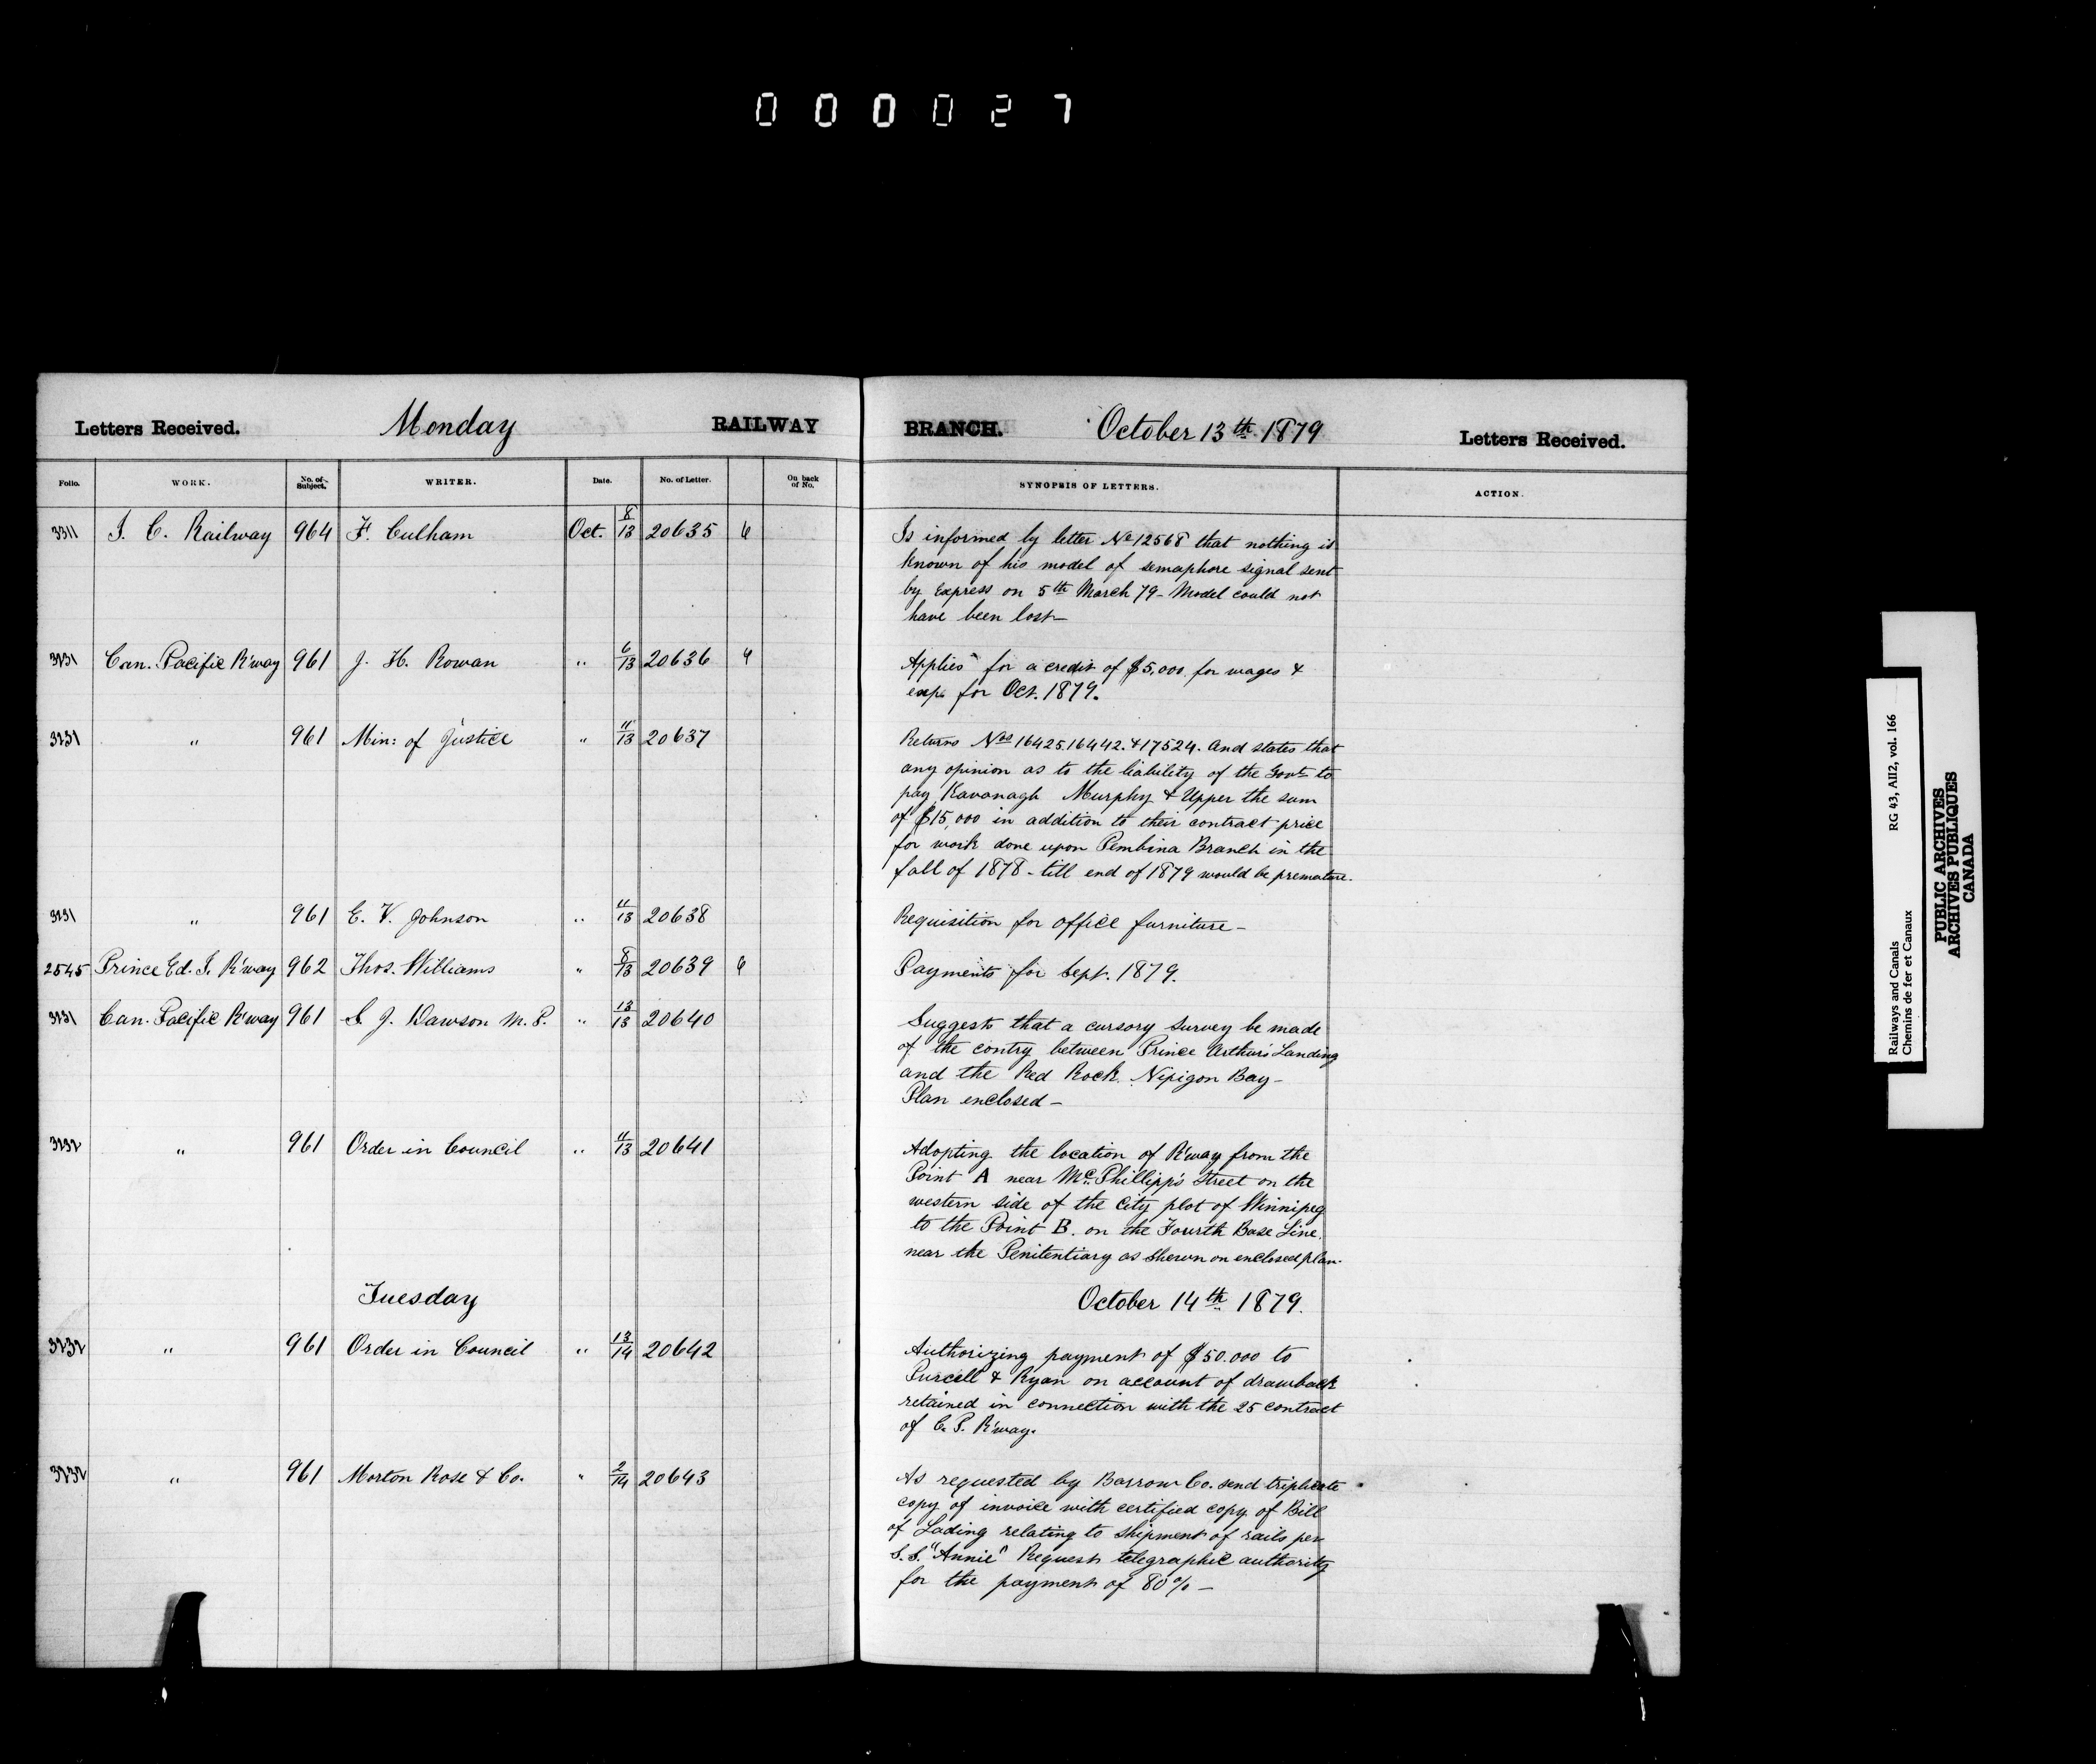 000027
Letters Received. Monday RAILWAY BRANCH. October 13th 1879 Letters Received.
Folio. WORK. No. of Subject. WRITER. Date. No. of Letter. On back of No. SYNOPSIS OF LETTERS. ACTION.
3311 I. C. Railway 964 F. Culham Oct. 8/13 20635 6 Is informed by letter No 12568 that nothing is
known of his model of semaphore signal sent
by Express on 5th March 79 - Model could not
have been lost -
3231 Can. Pacific R'way 961 J. H. Rowan " 6/13 20636 4 Applies for a credit of $5,000 for wages &
exp. for Oct. 1879.
3231 " 961 Min: of Justice " 11/13 20637 Returns Nos 16425.16442.&17524. And states that
any opinion as to the liability of the Govt to
pay Kavanagh Murphy & Upper the sum
of $15,000 in addition to their contract price
for work done upon Pembina Branch in the
fall of 1878 - till end of 1879 would be premature.
3231 " 961 E. V. Johnson " 11/13 20638 Requisition for office furniture -
2545 Prince Ed. I. R'way 962 Thos. Williams " 8/13 20639 6 Payments for Sept. 1879.
3231 Can. Pacific R'way 961 S. J. Dawson M. P. " 13/13 20640 Suggests that a cursory survey be made
of the contry between Prince Arthur's Landing
and the Red Rock. Nipigon Bay -
Plan enclosed -
3232 " 961 Order in Council " 11/13 20641 Adopting the location of R'way from the
Point A near McPhillipp's Street on the
western side of the City plot of Winnipeg
to the Point B. on the Fourth Base Line.
near the Penitentiary as shewn on enclosed plan.
Tuesday October 14th 1879.
3232 " 961 Order in Council " 13/14 20642 Authorizing payment of $50.000 to
Purcell & Ryan on account of drawback
retained in connection with the 25 contract
of C. P. R'way.
3232 " 961 Morton Rose & Co. " 2/14 20643 As requested by Barrow Co. send triplicate
copy of invoice with certified copy of Bill
of Lading relating to shipment of rails per
S.S. "Annie" Request telegraphic authority
for the payment of 80% -
Railways and Canals RG 43, AII2, vol. 166
Chemins de fer et Canaux
PUBLIC ARCHIVES
ARCHIVES PUBLIQUES
CANADA